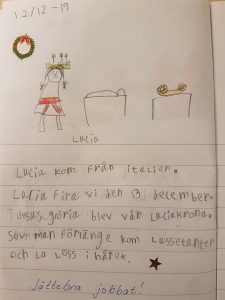 12/12-19
Lucia
Lucia kom från italien.
Lucia fira vi den 13 december.
jesus gloria blev vår Luciakrona.
Sovr man förlänge kom Lussetanter
och la Löss i håret.
Jättebra jobbat!